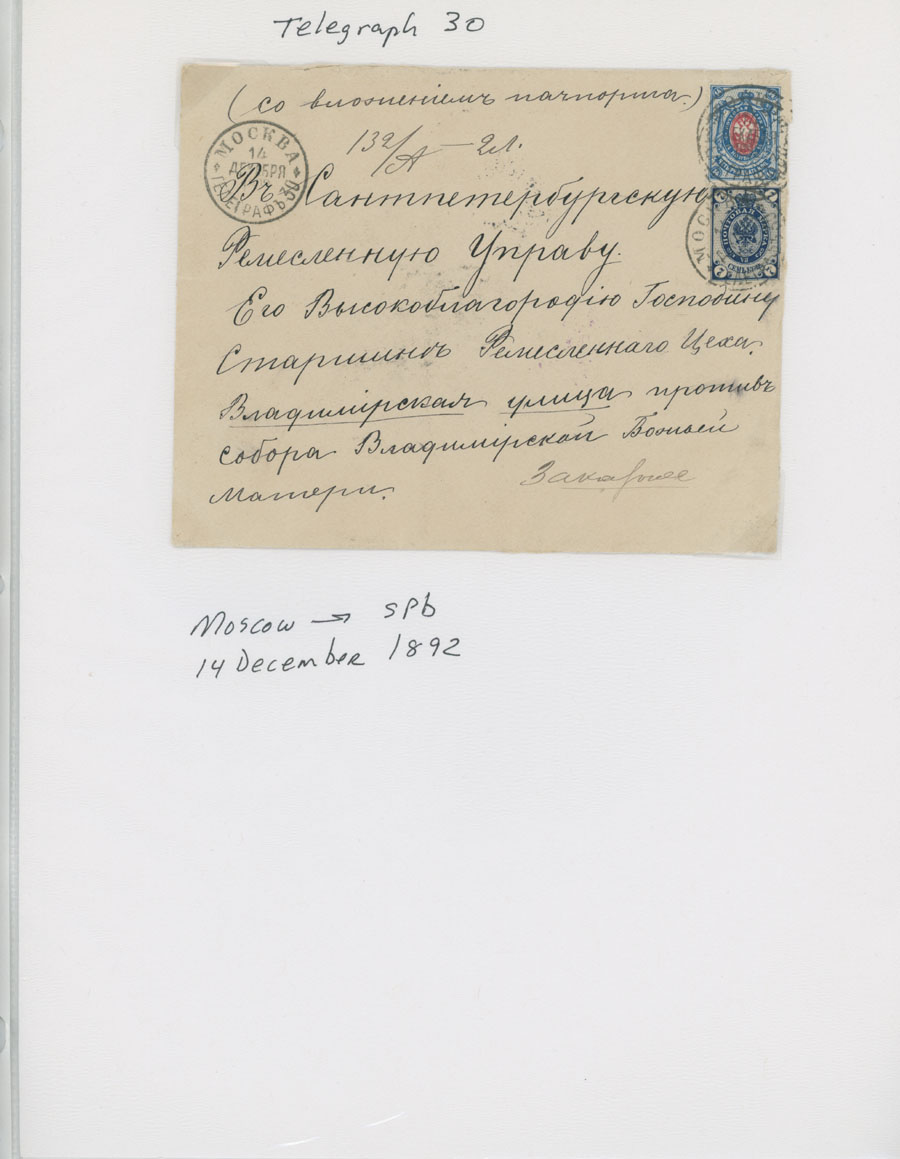 Telegraph 30
(со вложенiемъ пачпорта.)
132/А – 2л.
МОСКВА
14
ДЕКАБРЯ
ТЕЛЕГРАФЪ 30
Въ Санктпетербургскую
Ремесленную Управу.
Его Высокоблагородiю Господину
Старшинѣ Ремесленнаго Цеха.
Владимiрская улица противъ
собора Владимiрской Божьей
Матери.
7 7
ПОЧТОВАЯ МАРКА
СЕМЬ КОП.
7 7
МОСКВА
Moscow → SPb
14 December 1892